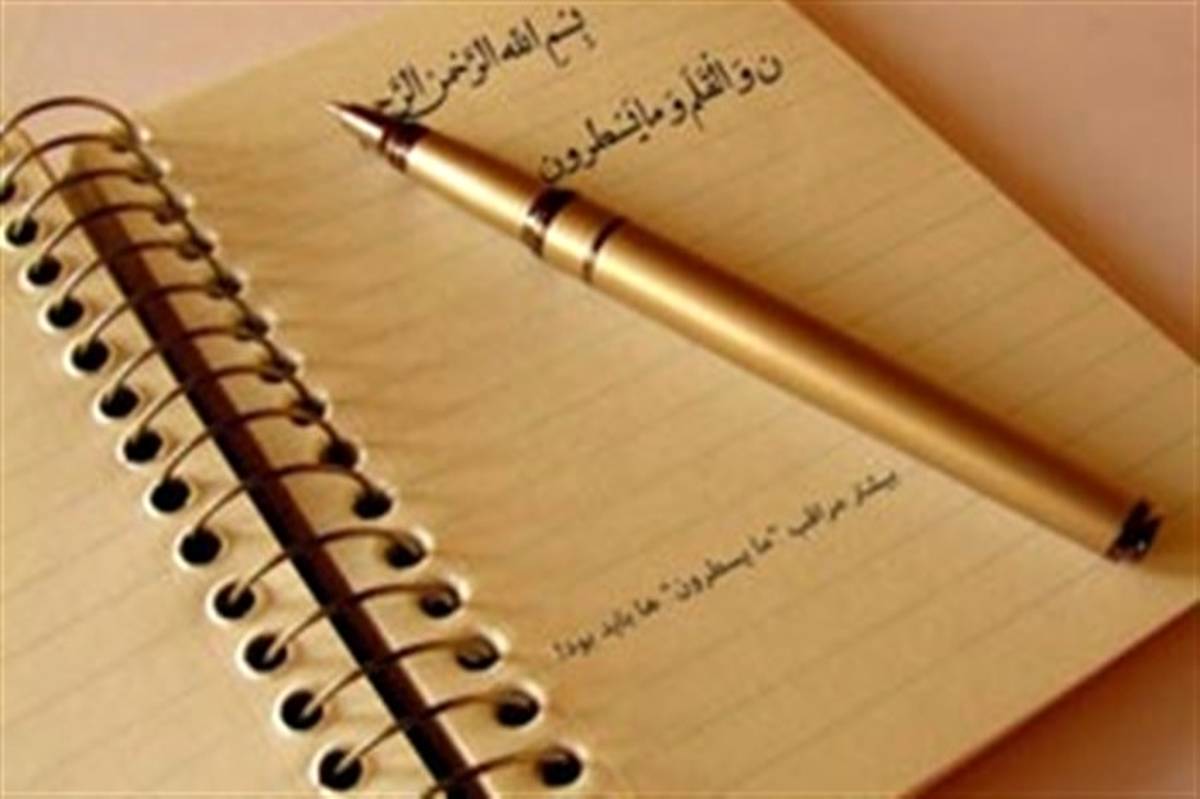 بِسْمِ اللهِ الرَّحْمنِ الرَّح
ن وَ الْقَلَمِ وَ ما يَسْطُرون
بیشتر مراقب "ما یسطرون" ها باید بود!